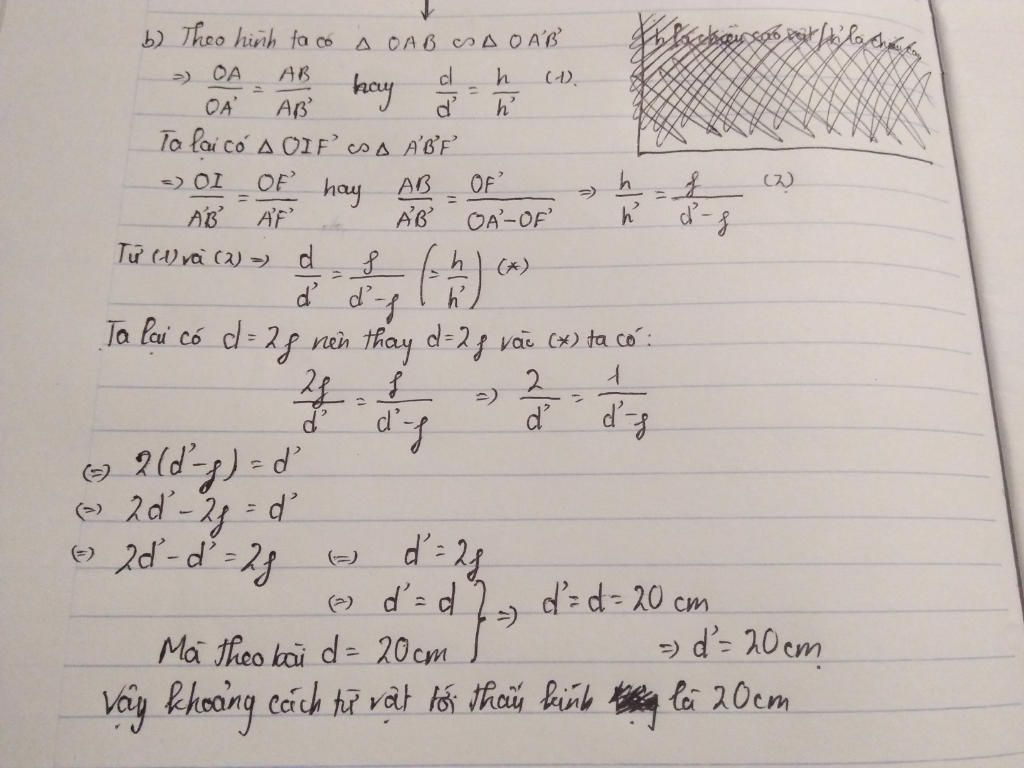 b) Theo hình ta có Δ OAB ∽ Δ OA'B'
h là chiều cao vật/h' là chiều
=> OA/OA' = AB/A'B' hay d/d' = h/h' (1).
Ta lại có Δ OIF' ∽ Δ A'B'F'
=> OI/A'B' = OF'/A'F' hay AB/A'B' = OF'/OA'-OF' => h/h' = f/d'-f (2)
Từ (1) và (2) => d/d' = f/d'-f (= h/h') (*)
Ta lại có d = 2f nên thay d = 2f vào (*) ta có:
2f/d' = f/d'-f => 2/d' = 1/d'-f
(=) 2(d'-f) = d'
(=) 2d' - 2f = d'
(=) 2d' - d' = 2f (=) d' = 2f
(=) d' = d } => d' = d = 20 cm
Mà theo bài d = 20cm => d' = 20cm.
Vậy khoảng cách từ vật tới thấu kính là 20cm